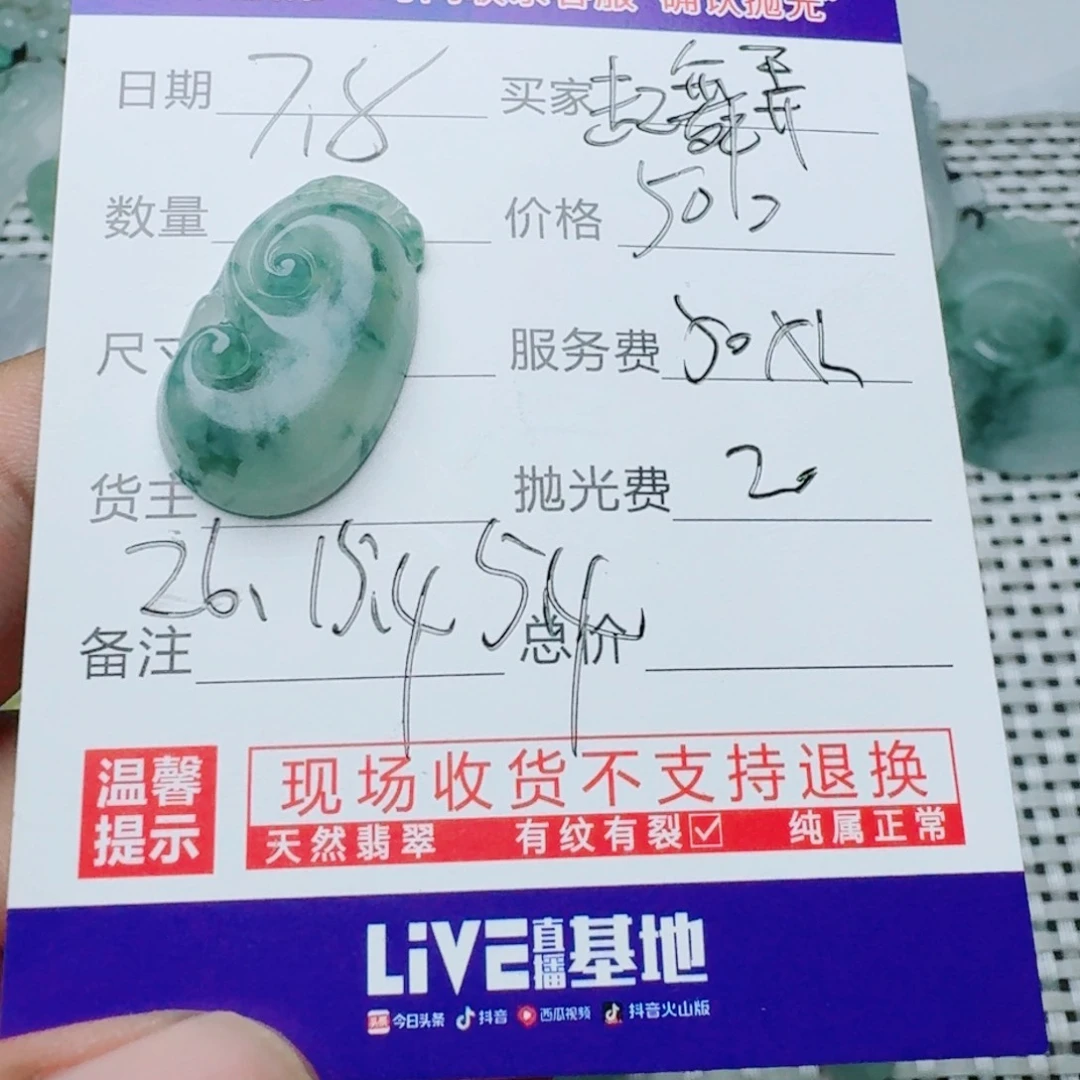 日期 7.8 买家
数量 价格 50
尺寸 服务费
货主 抛光费 2
26、15.4 5.4
备注 总价
温馨提示
现场收货不支持退换
天然翡翠 有纹有裂☑ 纯属正常
LiVE直播基地
头条 今日头条 抖音 西瓜视频 抖音火山版